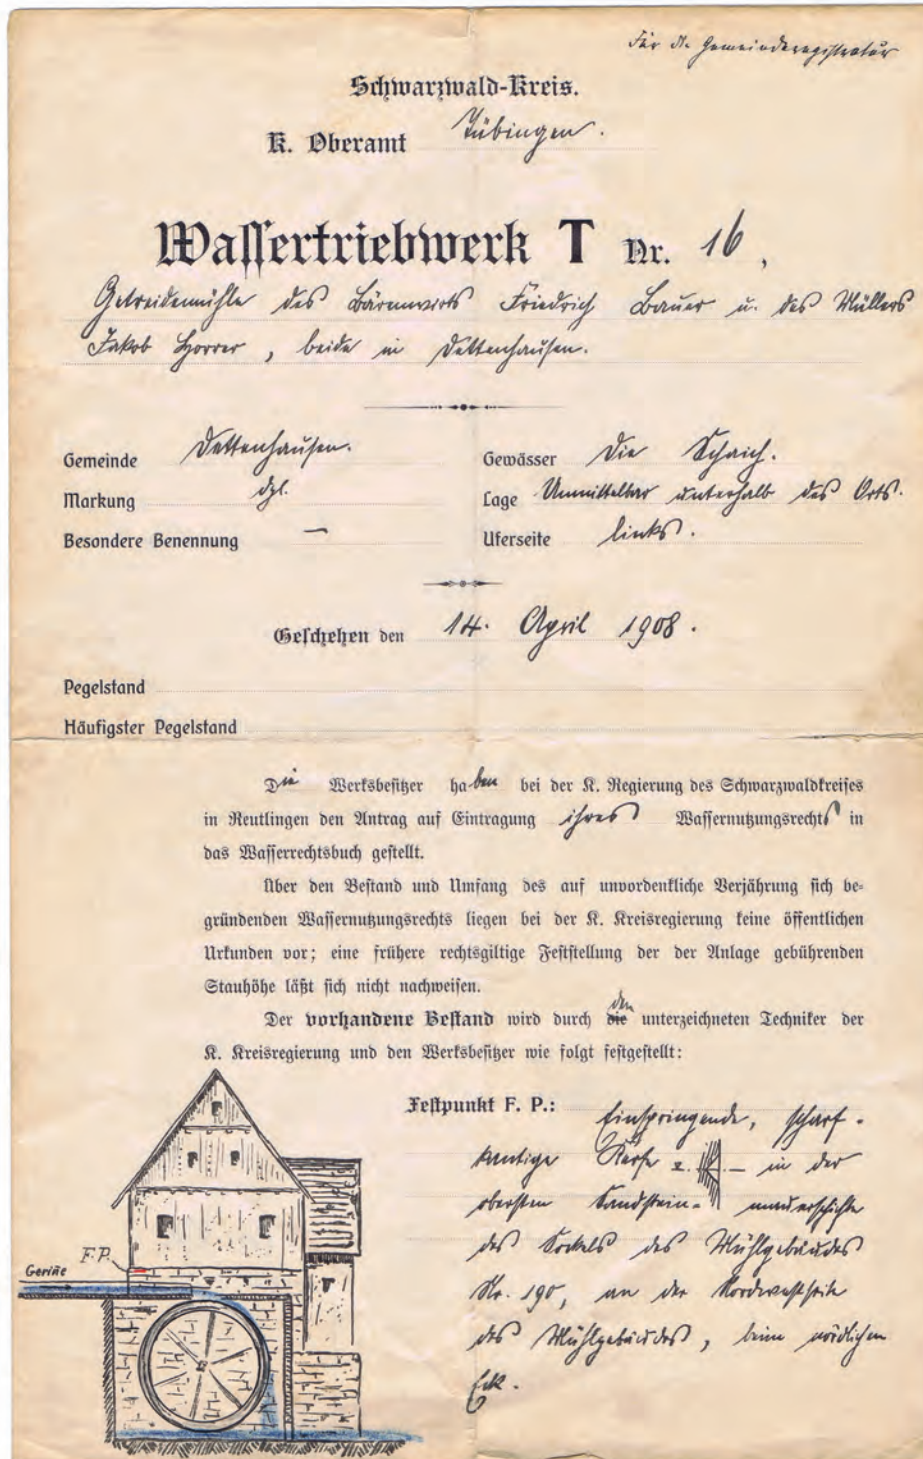 Für die Gemeinderegistratur
Schwarzwald-Kreis.
K. Oberamt Tübingen.
Wassertriebwerk T Nr. 16,
Getreidemühle des Bärenwirts Friedrich Bauer u. des Müllers
Jakob Horrer, beide in Dettenhausen.
Gemeinde Dettenhausen.
Markung dgl.
Besondere Benennung —
Gewässer Die Schaich.
Lage Unmittelbar unterhalb des Orts.
Uferseite links.
Geschehen den 14. April 1908.
Pegelstand
Häufigster Pegelstand
Die Werksbesitzer haben bei der K. Regierung des Schwarzwaldkreises
in Reutlingen den Antrag auf Eintragung ihres Wassernutzungsrechts in
das Wasserrechtsbuch gestellt.
Über den Bestand und Umfang des auf unvordenkliche Verjährung sich be-
gründenden Wassernutzungsrechts liegen bei der K. Kreisregierung keine öffentlichen
Urkunden vor; eine frühere rechtsgiltige Feststellung der der Anlage gebührenden
Stauhöhe läßt sich nicht nachweisen.
Der vorhandene Bestand wird durch die den unterzeichneten Techniker der
K. Kreisregierung und den Werksbesitzer wie folgt festgestellt:
Festpunkt F. P.: Einspringende, scharf-
kantige Kerfe in der
obersten Sandstein- mauerschichte
des Sockels des Mühlgebäudes
Nr. 190, an der Nordwestseite
des Mühlgebäudes, beim nördlichen
Eck.
F.P.
Gerin̄e